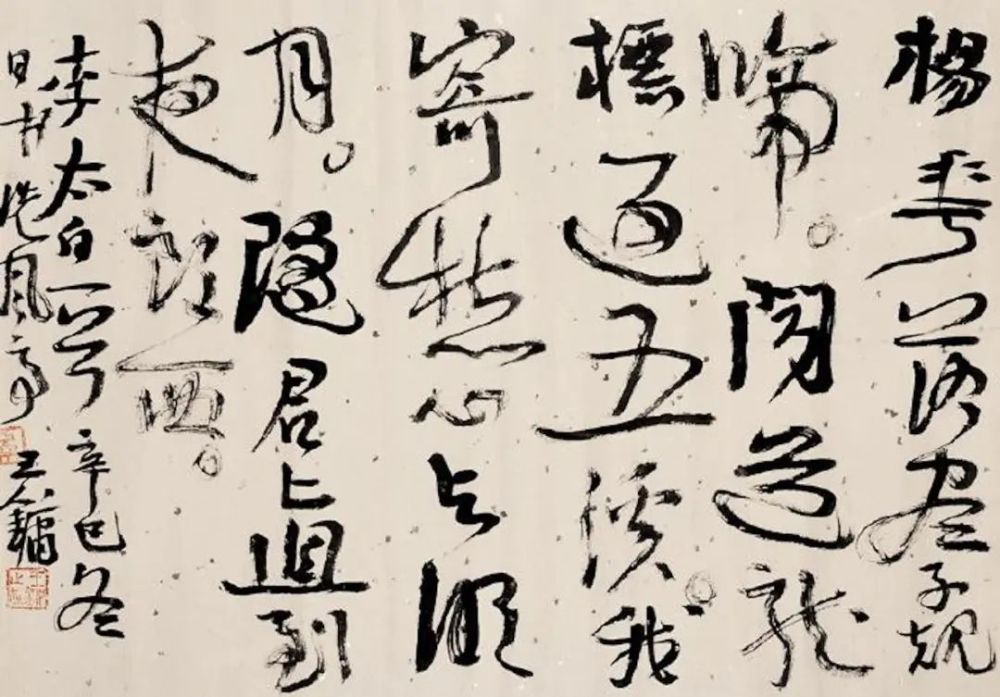 楊華落盡子規
啼。聞道龍
標過五溪。我
寄愁心與明
月。隨君直到
夜郎西。
李太白一首 辛巳冬
日書風亭 王鏞